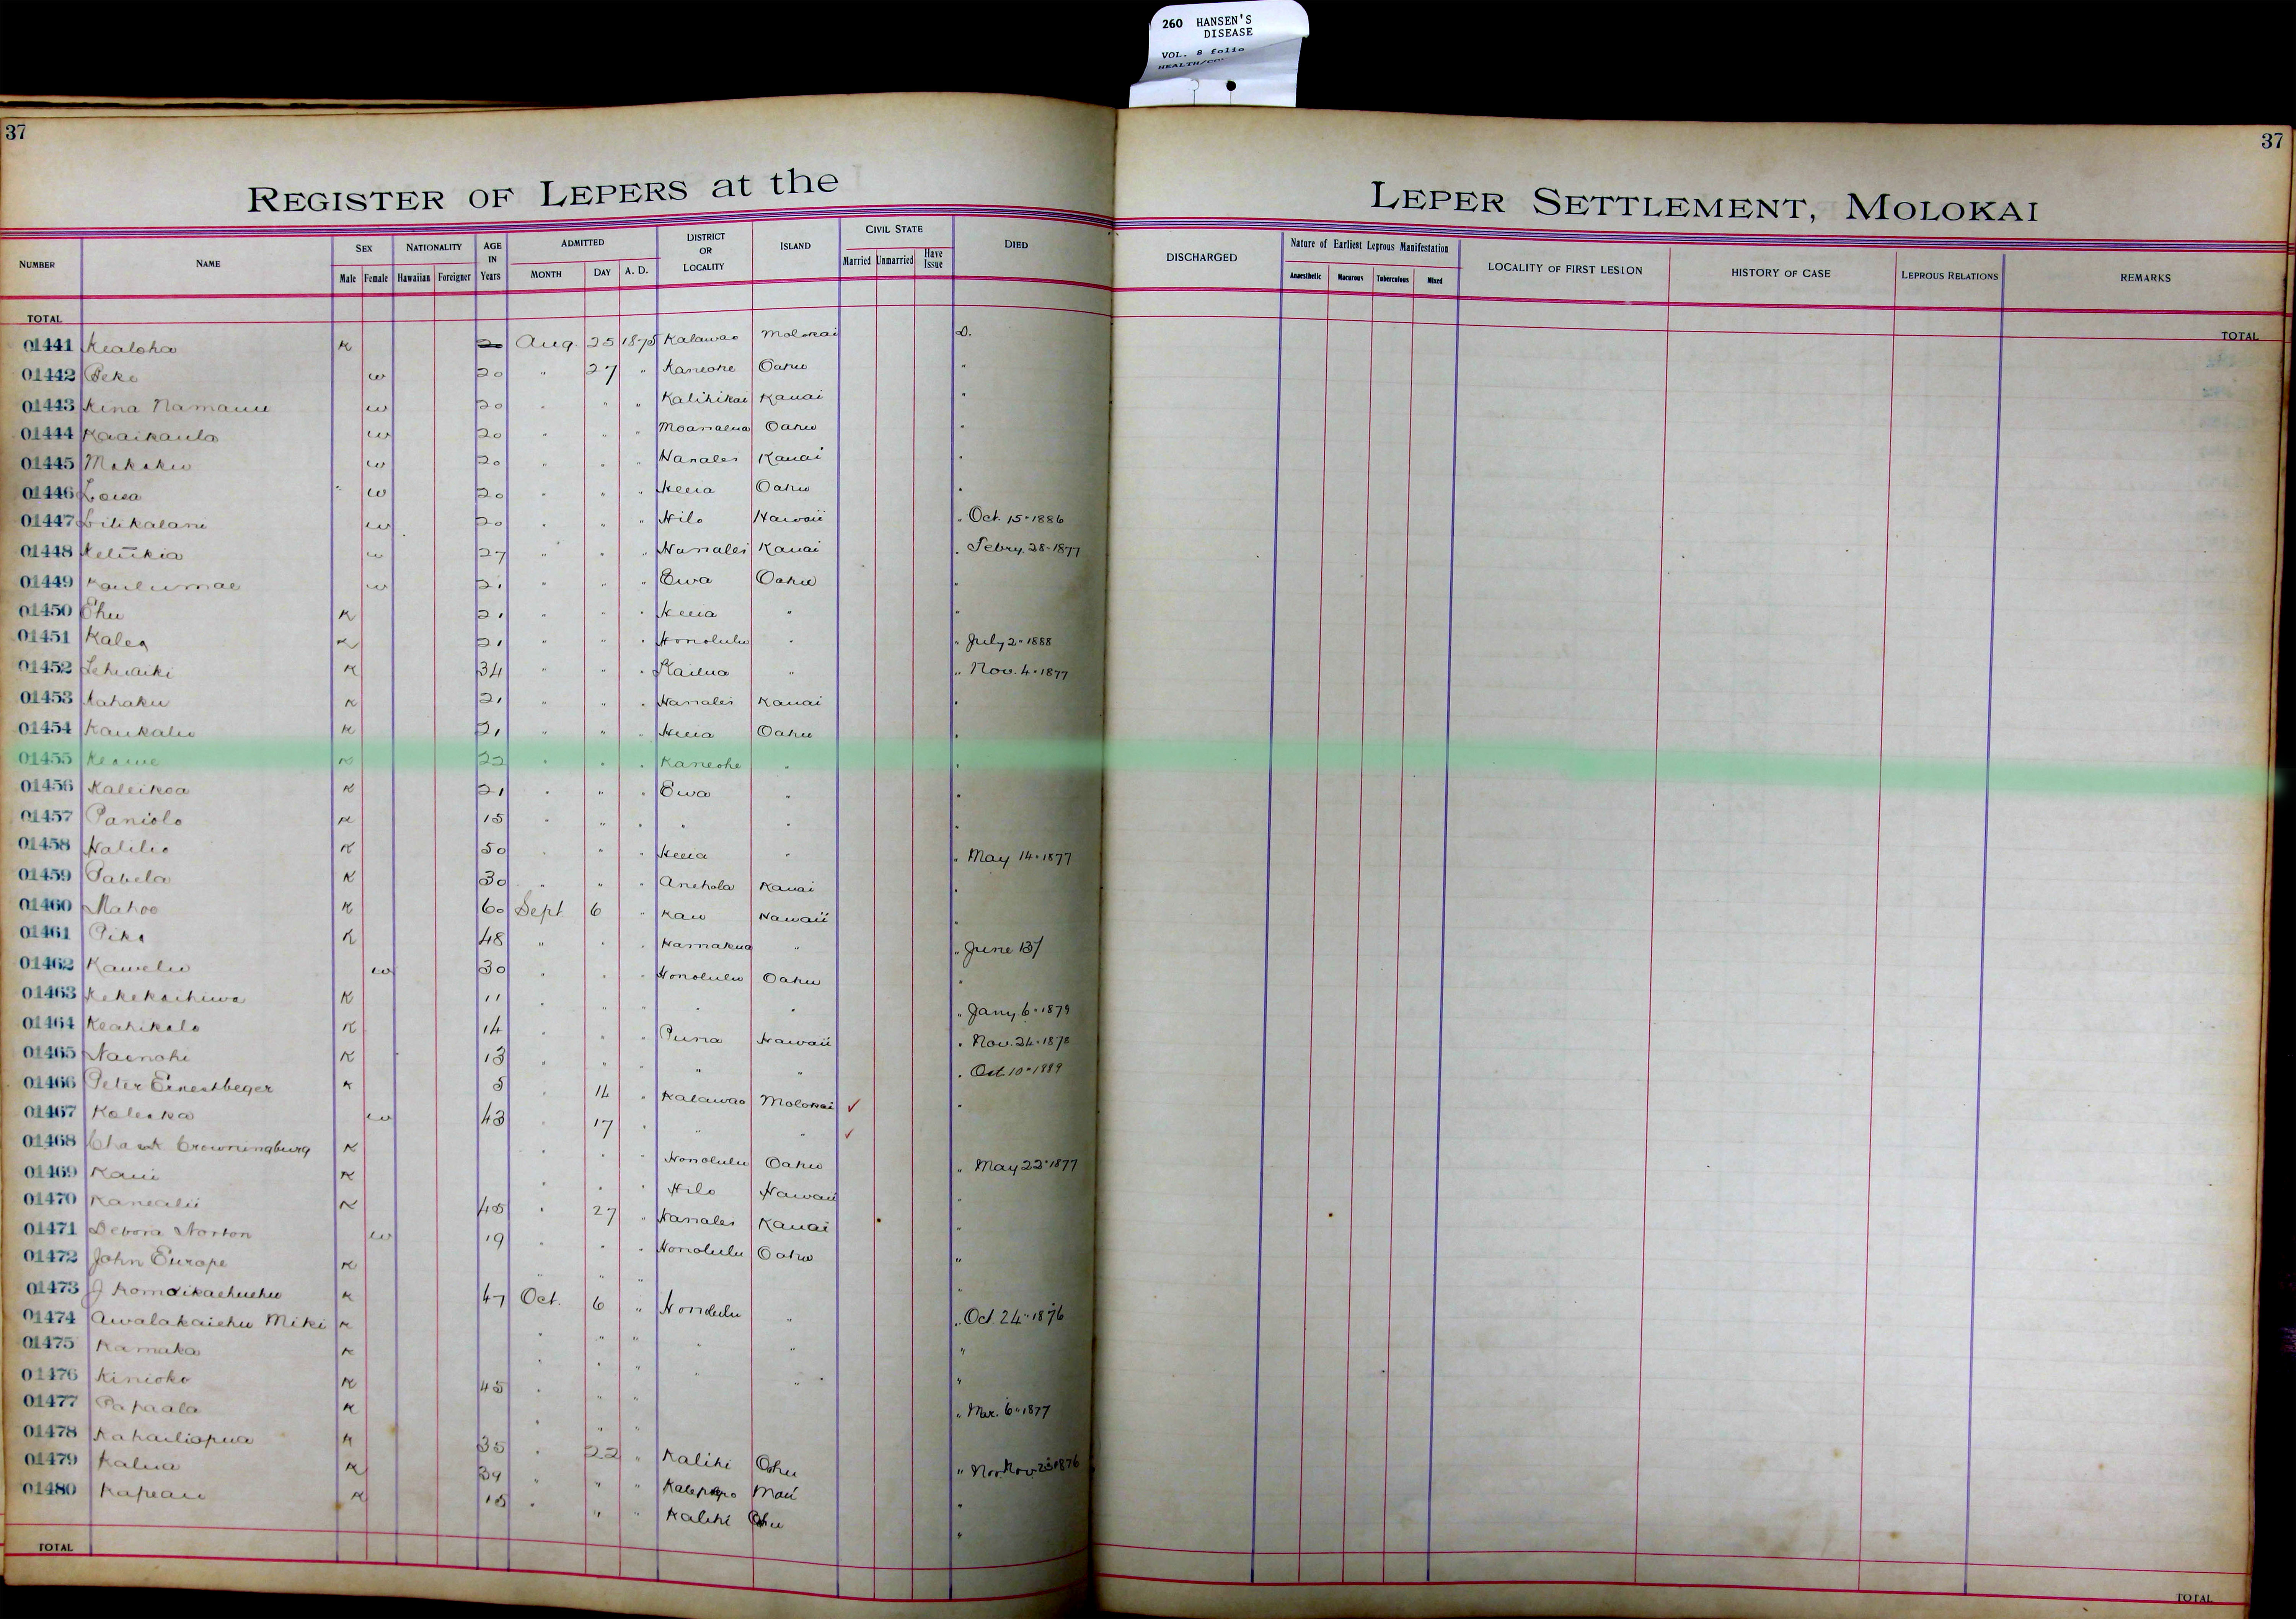 260 HANSEN'S
DISEASE
VOL. 8 folio
37
37
REGISTER OF LEPERS at the
LEPER SETTLEMENT, MOLOKAI
NUMBER NAME SEX Male Female NATIONALITY Hawaiian Foreigner AGE IN Years ADMITTED MONTH DAY A. D. DISTRICT OR LOCALITY ISLAND CIVIL STATE Married Unmarried Have Issue DIED DISCHARGED Nature of Earliest Leprous Manifestation Anaesthetic Macurous Tuberculous Mixed LOCALITY OF FIRST LESION HISTORY OF CASE LEPROUS RELATIONS REMARKS
TOTAL
TOTAL
01441 Kealoha K 20 Aug. 25 1875 Kalawao Molokai D.
01442 Peke w 20 " 27 " Kaneohe Oahu "
01443 Kina Namauu w 20 " " " Kalihikai Kauai "
01444 Kaaikaula w 20 " " " Moanalua Oahu "
01445 Makaku w 20 " " " Hanalei Kauai "
01446 Loisa w 20 " " " Heeia Oahu "
01447 Lilikalani w 20 " " " Hilo Hawaii " Oct. 15 - 1886
01448 Keliikia w 27 " " " Hanalei Kauai " Febry. 28 - 1877
01449 Kaulumae w 21 " " " Ewa Oahu "
01450 Ehu K 21 " " " Heeia " "
01451 Kalea K 21 " " " Honolulu " " July 2 - 1888
01452 Lehuaiki K 34 " " " Kailua " " Nov. 4 - 1877
01453 Kahaku K 21 " " " Hanalei Kauai "
01454 Kaukaliu K 21 " " " Heeia Oahu "
01455 Keawe K 22 " " " Kaneohe " "
01456 Kaleikoa K 21 " " " Ewa " "
01457 Paniolo K 15 " " " " " "
01458 Halilio K 50 " " " Heeia " " May 14 - 1877
01459 Pabela K 30 " " " Anehola Kauai "
01460 Mahoe K 60 Sept 6 " Kau Hawaii "
01461 Pika K 48 " " " Hamakua " " June 13/
01462 Kawelu w 30 " " " Honolulu Oahu "
01463 Kekekaihiwa K 11 " " " " " " Jany 6 - 1879
01464 Keahikolo K 14 " " " Puna Hawaii " Nov. 24 - 1878
01465 Nainohi K 13 " " " " " " Oct 10 - 1889
01466 Peter Ernestbeger K 5 " 14 " Kalawao Molokai ✓ "
01467 Kaleika w 43 " 17 " " " ✓
01468 Crowningburg K " " " Honolulu Oahu " May 22 - 1877
01469 Kaui K " " " Hilo Hawaii "
01470 Kanealii K 45 " 27 " Hanalei Kauai "
01471 Debora Norton w 19 " " " Honolulu Oahu "
01472 John Europe K " " " "
01473 J Komoikaehuehu K 47 Oct. 6 " Honolulu " " Oct. 24 - 1876
01474 Awalakaiehu Miki K " " " " " "
01475 Kamaka K " " " " " "
01476 Kinioko K 45 " " " "
01477 Papaala K " " " " Mar. 6 - 1877
01478 Kahailiopua K 35 " 22 " Kalihi Oahu " Nov. 25 1876
01479 Kalua K 39 " " " Maui "
01480 Kapeau K 15 " " " Kalihi Oahu "
TOTAL
TOTAL